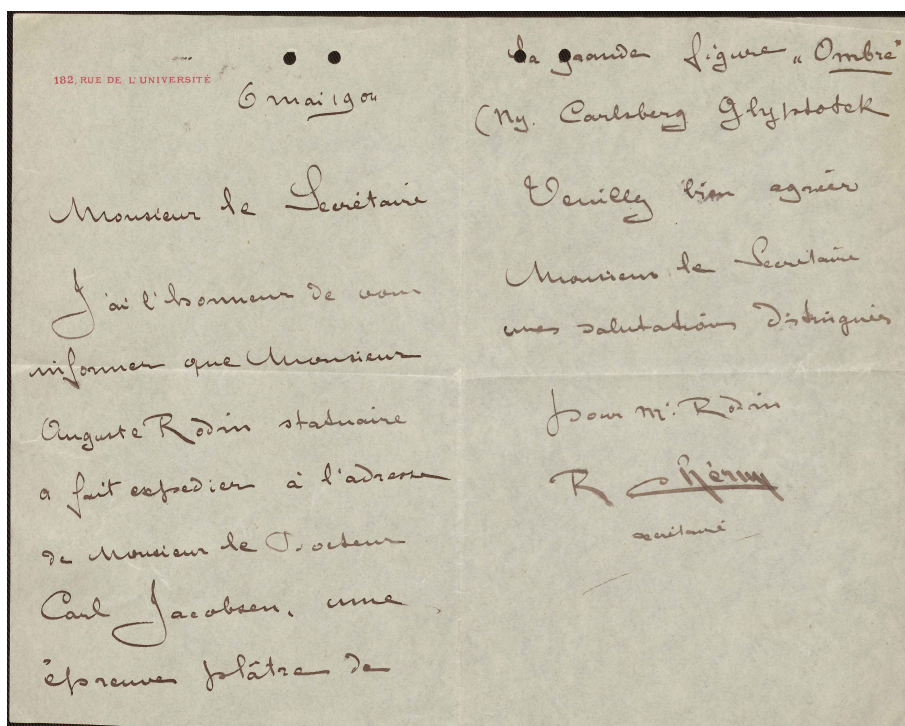 182, RUE DE L'UNIVERSITÉ
6 mai 1904
Monsieur le Secrétaire
J'ai l'honneur de vous
informer que Monsieur
Auguste Rodin statuaire
a fait expedier à l'adresse
de Monsieur le Docteur
Carl Jacobsen, une
épreuve plâtre de
La grande figure "Ombre"
(Ny. Carlsberg Glyptotek
Veuillez bien agréer
Monsieur le Secrétaire
mes salutations distinguées
pour Mr. Rodin
R Chéruy
secrétaire